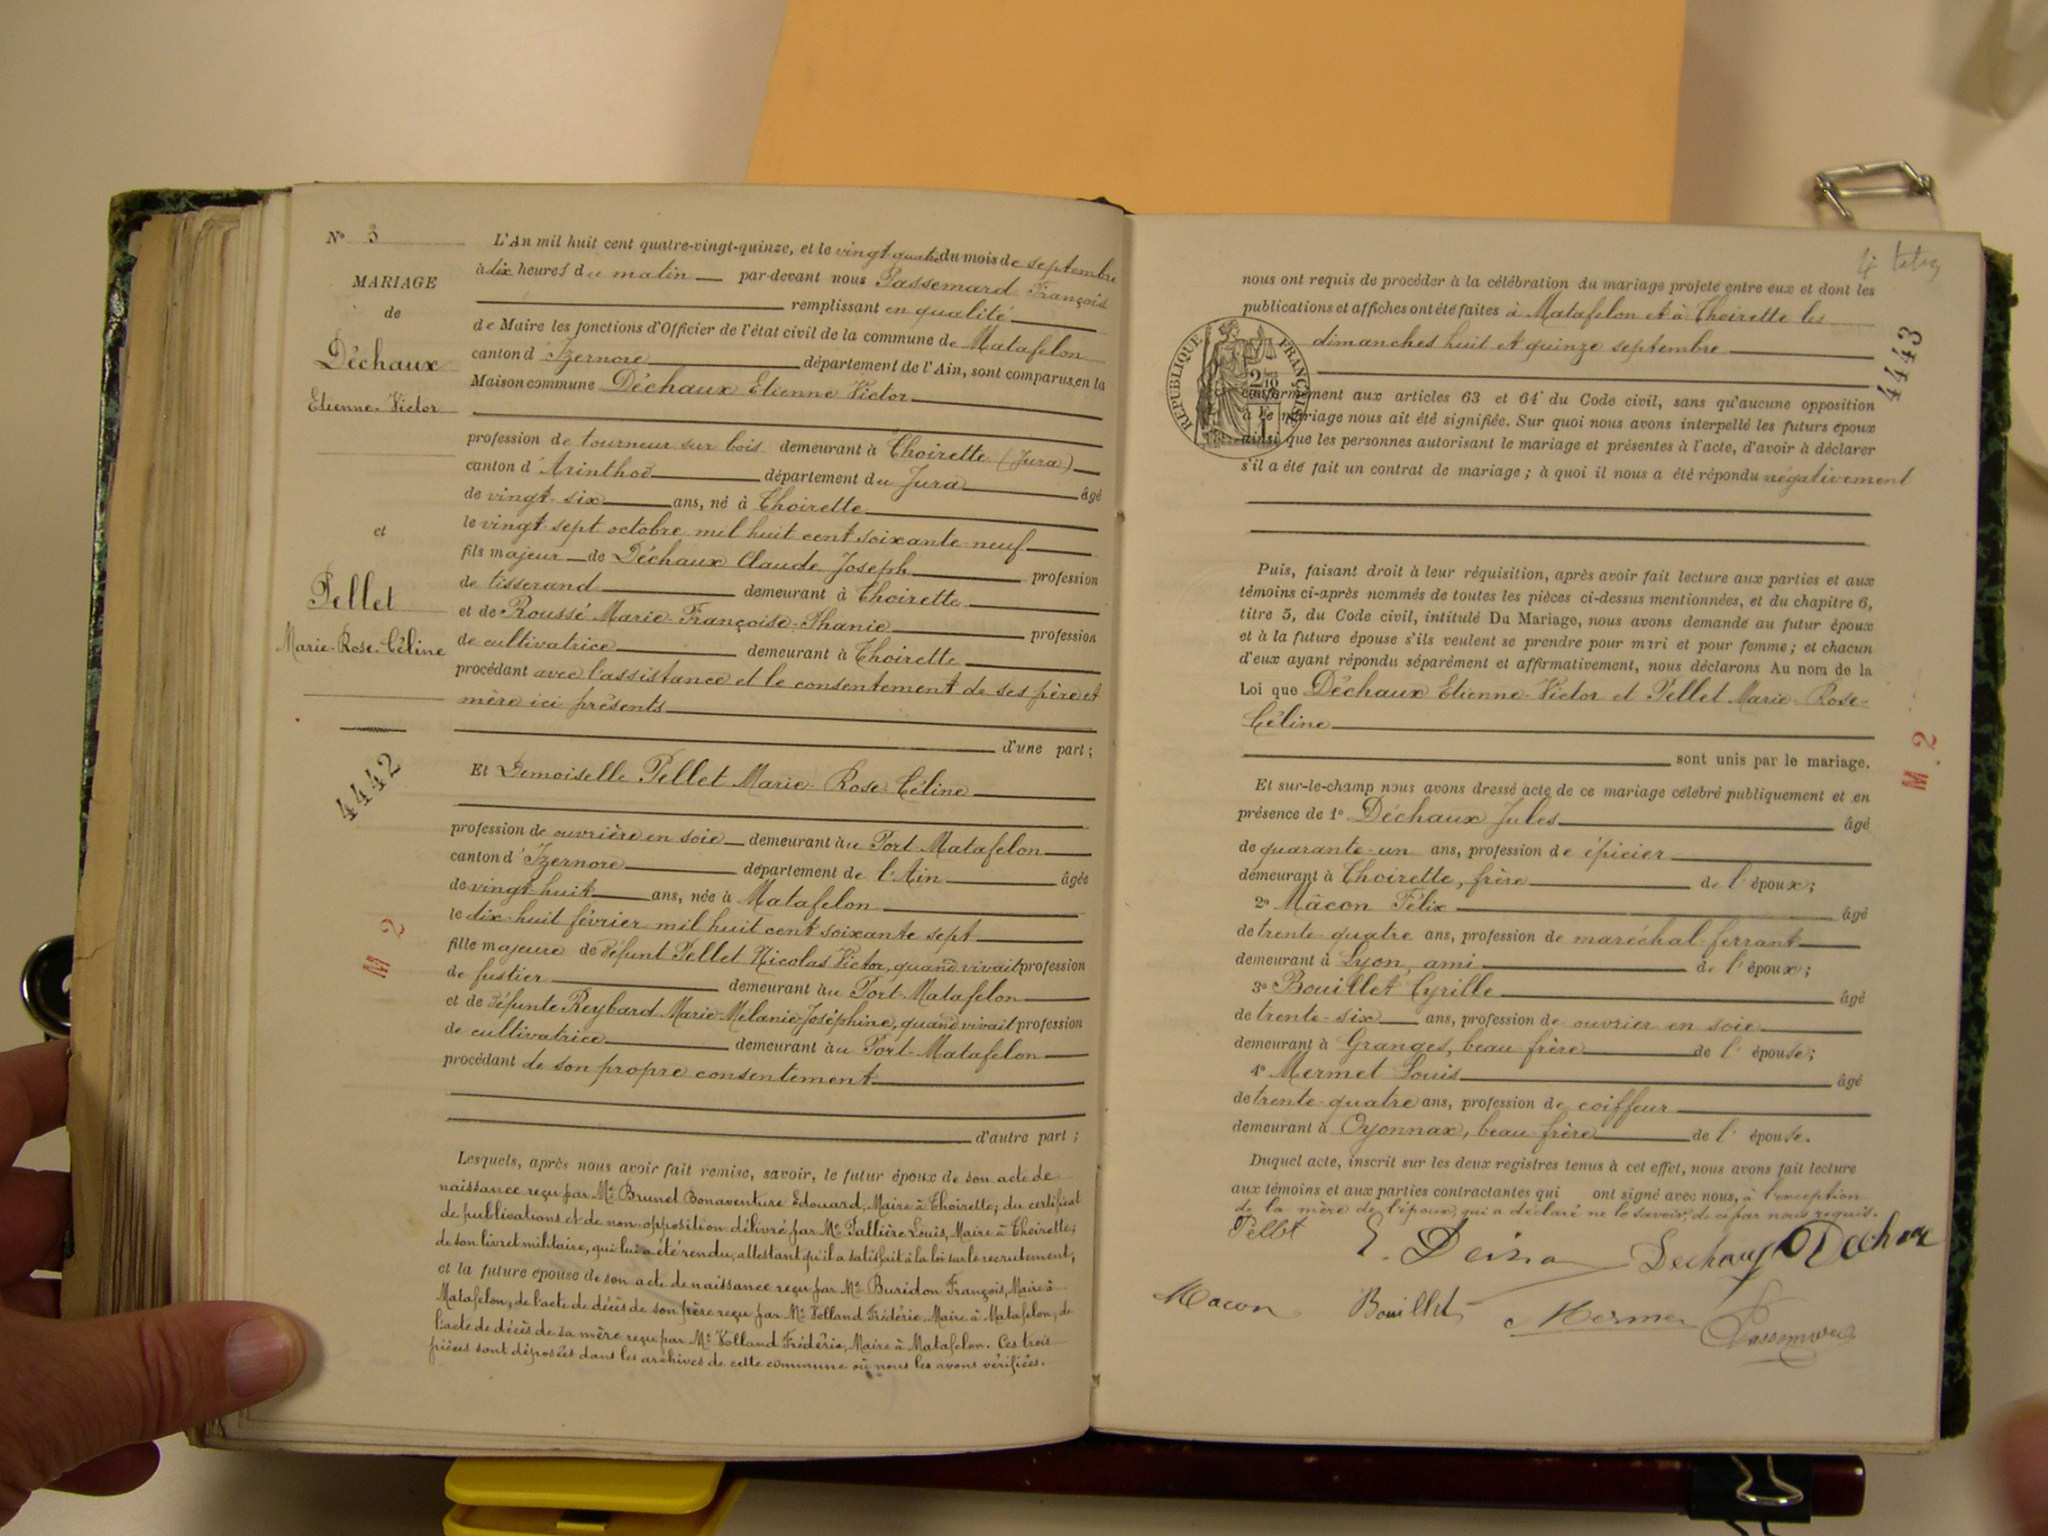 N° 3
MARIAGE
de
Déchaux
Etienne-Victor
et
Pellet
Marie-Rose-Céline
4442
M 2
L'An mil huit cent quatre-vingt-quinze, et le vingt quatre du mois de septembre
à dix heures du matin par-devant nous Passemard François
remplissant en qualité
de Maire les fonctions d'Officier de l'état civil de la commune de Matafelon
canton d'Izernore département de l'Ain, sont comparus en la
Maison commune Déchaux Etienne Victor
profession de tourneur sur bois demeurant à Thoirette (Jura)
canton d'Arinthod département du Jura âgé
de vingt-six ans, né à Thoirette
le vingt-sept octobre mil huit cent soixante-neuf
fils majeur de Déchaux Claude Joseph profession
de tisserand demeurant à Thoirette
et de Roussé Marie-Françoise-Phanie profession
de cultivatrice demeurant à Thoirette
procédant avec l'assistance et le consentement de ses père et
mère ici présents
d'une part;
Et Demoiselle Pellet Marie-Rose-Céline
profession de ouvrière en soie demeurant au Port-Matafelon
canton d'Izernore département de l'Ain âgée
de vingt-huit ans, née à Matafelon
le dix-huit février mil huit cent soixante sept
fille majeure de défunt Pellet Nicolas Victor, quand vivait profession
de fustier demeurant au Port-Matafelon
et de défunte Reybard Marie-Mélanie-Joséphine, quand vivait profession
de cultivatrice demeurant au Port-Matafelon
procédant de son propre consentement
d'autre part;
Lesquels, après nous avoir fait remise, savoir, le futur époux de son acte de
naissance reçu par Mr Brunet Bonaventure Edouard, Maire à Thoirette; du certificat
de publications et de non-opposition délivré par Mr Tallière Louis, Maire à Thoirette;
de son livret militaire, qui lui a été rendu, attestant qu'il a satisfait à la loi sur le recrutement,
et la future épouse de son acte de naissance reçu par Mr Buridon François, Maire à
Matafelon, de l'acte de décès de son père reçu par Mr Volland Frédéric, Maire à Matafelon, de
l'acte de décès de sa mère reçu par Mr Volland Frédéric, Maire à Matafelon. Ces trois
pièces sont déposées dans les archives de cette commune où nous les avons vérifiées.
4443
M. 2
RÉPUBLIQUE FRANÇAISE
nous ont requis de procéder à la célébration du mariage projeté entre eux et dont les
publications et affiches ont été faites à Matafelon et à Thoirette les
dimanches huit et quinze septembre
conformément aux articles 63 et 64 du Code civil, sans qu'aucune opposition
à ce mariage nous ait été signifiée. Sur quoi nous avons interpellé les futurs époux
ainsi que les personnes autorisant le mariage et présentes à l'acte, d'avoir à déclarer
s'il a été fait un contrat de mariage; à quoi il nous a été répondu négativement
Puis, faisant droit à leur réquisition, après avoir fait lecture aux parties et aux
témoins ci-après nommés de toutes les pièces ci-dessus mentionnées, et du chapitre 6,
titre 5, du Code civil, intitulé Du Mariage, nous avons demandé au futur époux
et à la future épouse s'ils veulent se prendre pour mari et pour femme; et chacun
d'eux ayant répondu séparément et affirmativement, nous déclarons Au nom de la
Loi que Déchaux Etienne-Victor et Pellet Marie-Rose-
Céline
sont unis par le mariage.
Et sur-le-champ nous avons dressé acte de ce mariage célébré publiquement et en
présence de 1° Déchaux Jules âgé
de quarante-un ans, profession de épicier
demeurant à Thoirette, frère de l'époux;
2° Mâcon Félix âgé
de trente-quatre ans, profession de maréchal-ferrant
demeurant à Lyon, ami de l'époux;
3° Bouillet Cyrille âgé
de trente-six ans, profession de ouvrier en soie
demeurant à Granges, beau frère de l'épouse;
4° Mermet Louis âgé
de trente-quatre ans, profession de coiffeur
demeurant à Oyonnax, beau frère de l'épouse.
Duquel acte, inscrit sur les deux registres tenus à cet effet, nous avons fait lecture
aux témoins et aux parties contractantes qui ont signé avec nous, à l'exception
de la mère de l'époux, qui a déclaré ne le savoir, de ce par nous requis.
Pellet Dechaux Dechaux
Macon Bouillet Mermet Passemard